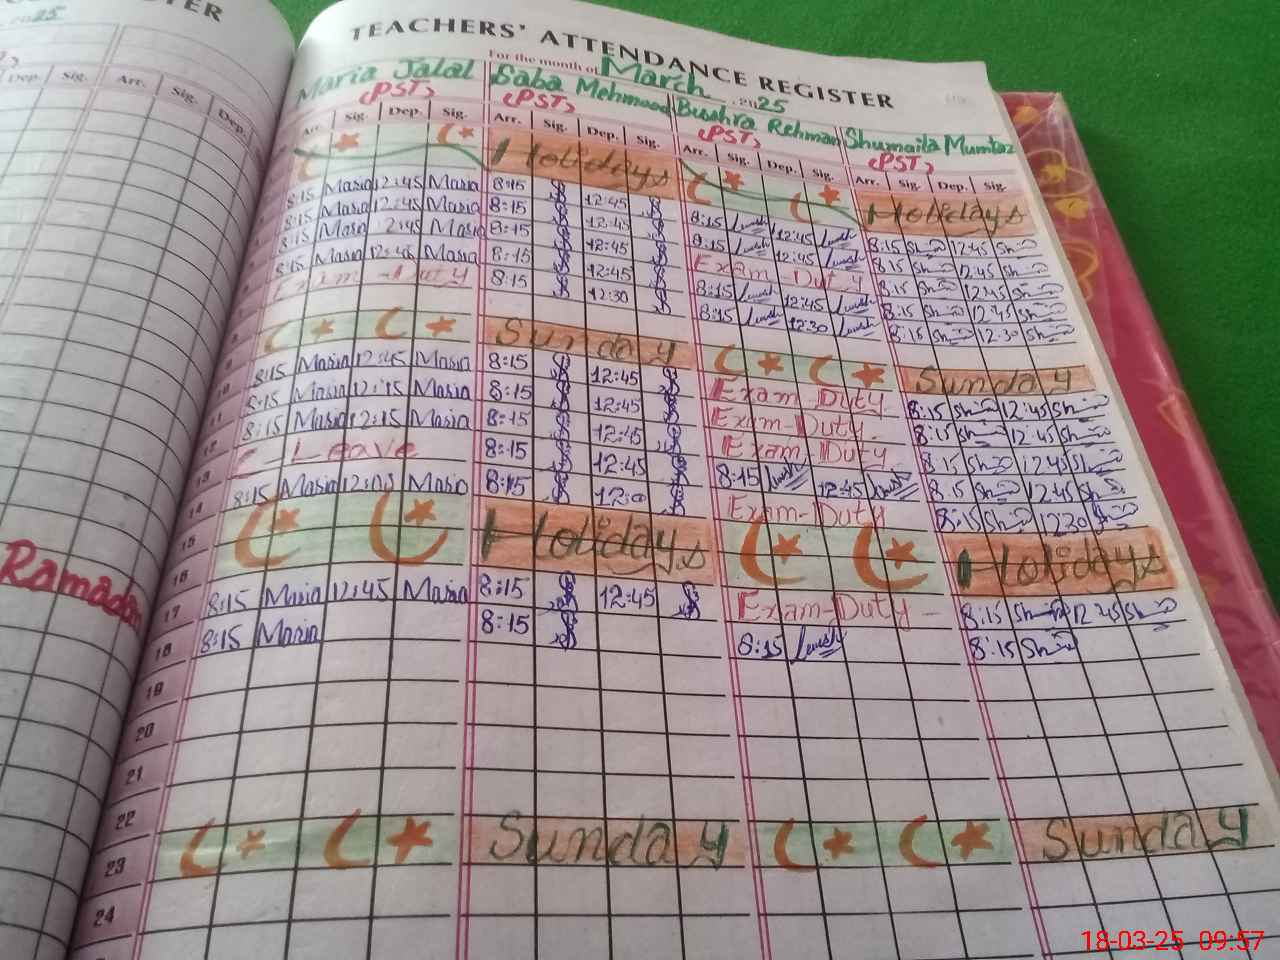 STER
2025
Dep. Sig. Arr. Sig. Dep.
Ramadan
TEACHERS' ATTENDANCE REGISTER
For the month of March 2025
Maria Jalal Saba Mehmood Bushra Rehman Shumaila Mumtaz
(PST) (PST) (PST) (PST)
Arr. Sig. Dep. Sig. Arr. Sig. Dep. Sig. Arr. Sig. Dep. Sig. Arr. Sig. Dep. Sig.
Holidays Holidays
8:15 Maria 12:45 Maria 8:15 12:45 8:15 12:45 8:15 Sh 12:45 Sh
8:15 Maria 12:45 Maria 8:15 12:45 8:15 12:45 8:15 Sh 12:45 Sh
8:15 Maria 2:45 Maria 8:15 12:45 Exam-Duty 8:15 Sh 12:45 Sh
8:15 Maria 12:45 Maria 8:15 12:45 8:15 12:45 8:15 Sh 12:45 Sh
Exam-Duty 8:15 12:30 8:15 12:30 8:15 Sh 12:30 Sh
Sunday Sunday
8:15 Maria 12:45 Maria 8:15 12:45 Exam-Duty 8:15 Sh 12:45 Sh
10 8:15 Maria 12:15 Maria 8:15 12:45 Exam-Duty 8:15 Sh 12:45 Sh
11 8:15 Maria 12:15 Maria 8:15 12:45 Exam Duty 8:15 Sh 12:45 Sh
12 C-Leave 8:15 12:45 8:15 12:45 8:15 Sh 12:45 Sh
13 8:15 Maria 12:00 Maria 8:15 Exam-Duty 8:15 Sh 12:30 Sh
14
15 Holidays Holidays
16
17 8:15 Maria 12:45 Maria 8:15 12:45 Exam-Duty 8:15 Sh 12:45 Sh
18 8:15 Maria 8:15 8:15 8:15 Sh
19
20
21
22
23 Sunday Sunday
24
18-03-25 09:57